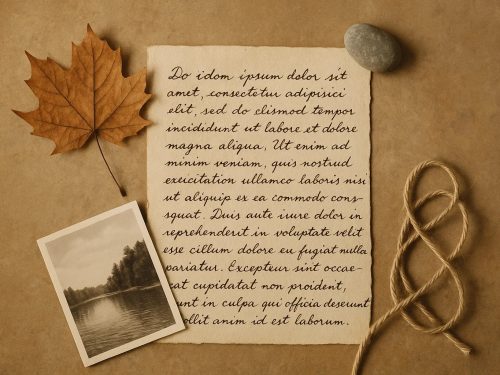 Do idom ipsum dolor sit
amet, consectetur adipisici
elit, sed do elismod tempor
incididunt ut labore et dolore
magna aliqua. Ut enim ad
minim veniam, quis nostrud
exucitation ullamco laboris nisi
ut aliquip ex ea commodo cons-
squat. Duis aute iuure dolor in
reprehenderit in voluptate velit
esse cillum dolore eu fugiat nulla
pariatur. Excepteur sint occae-
cat cupidatat non proident,
sunt in culpa qui officia deserunt
mollit anim id est laborum.